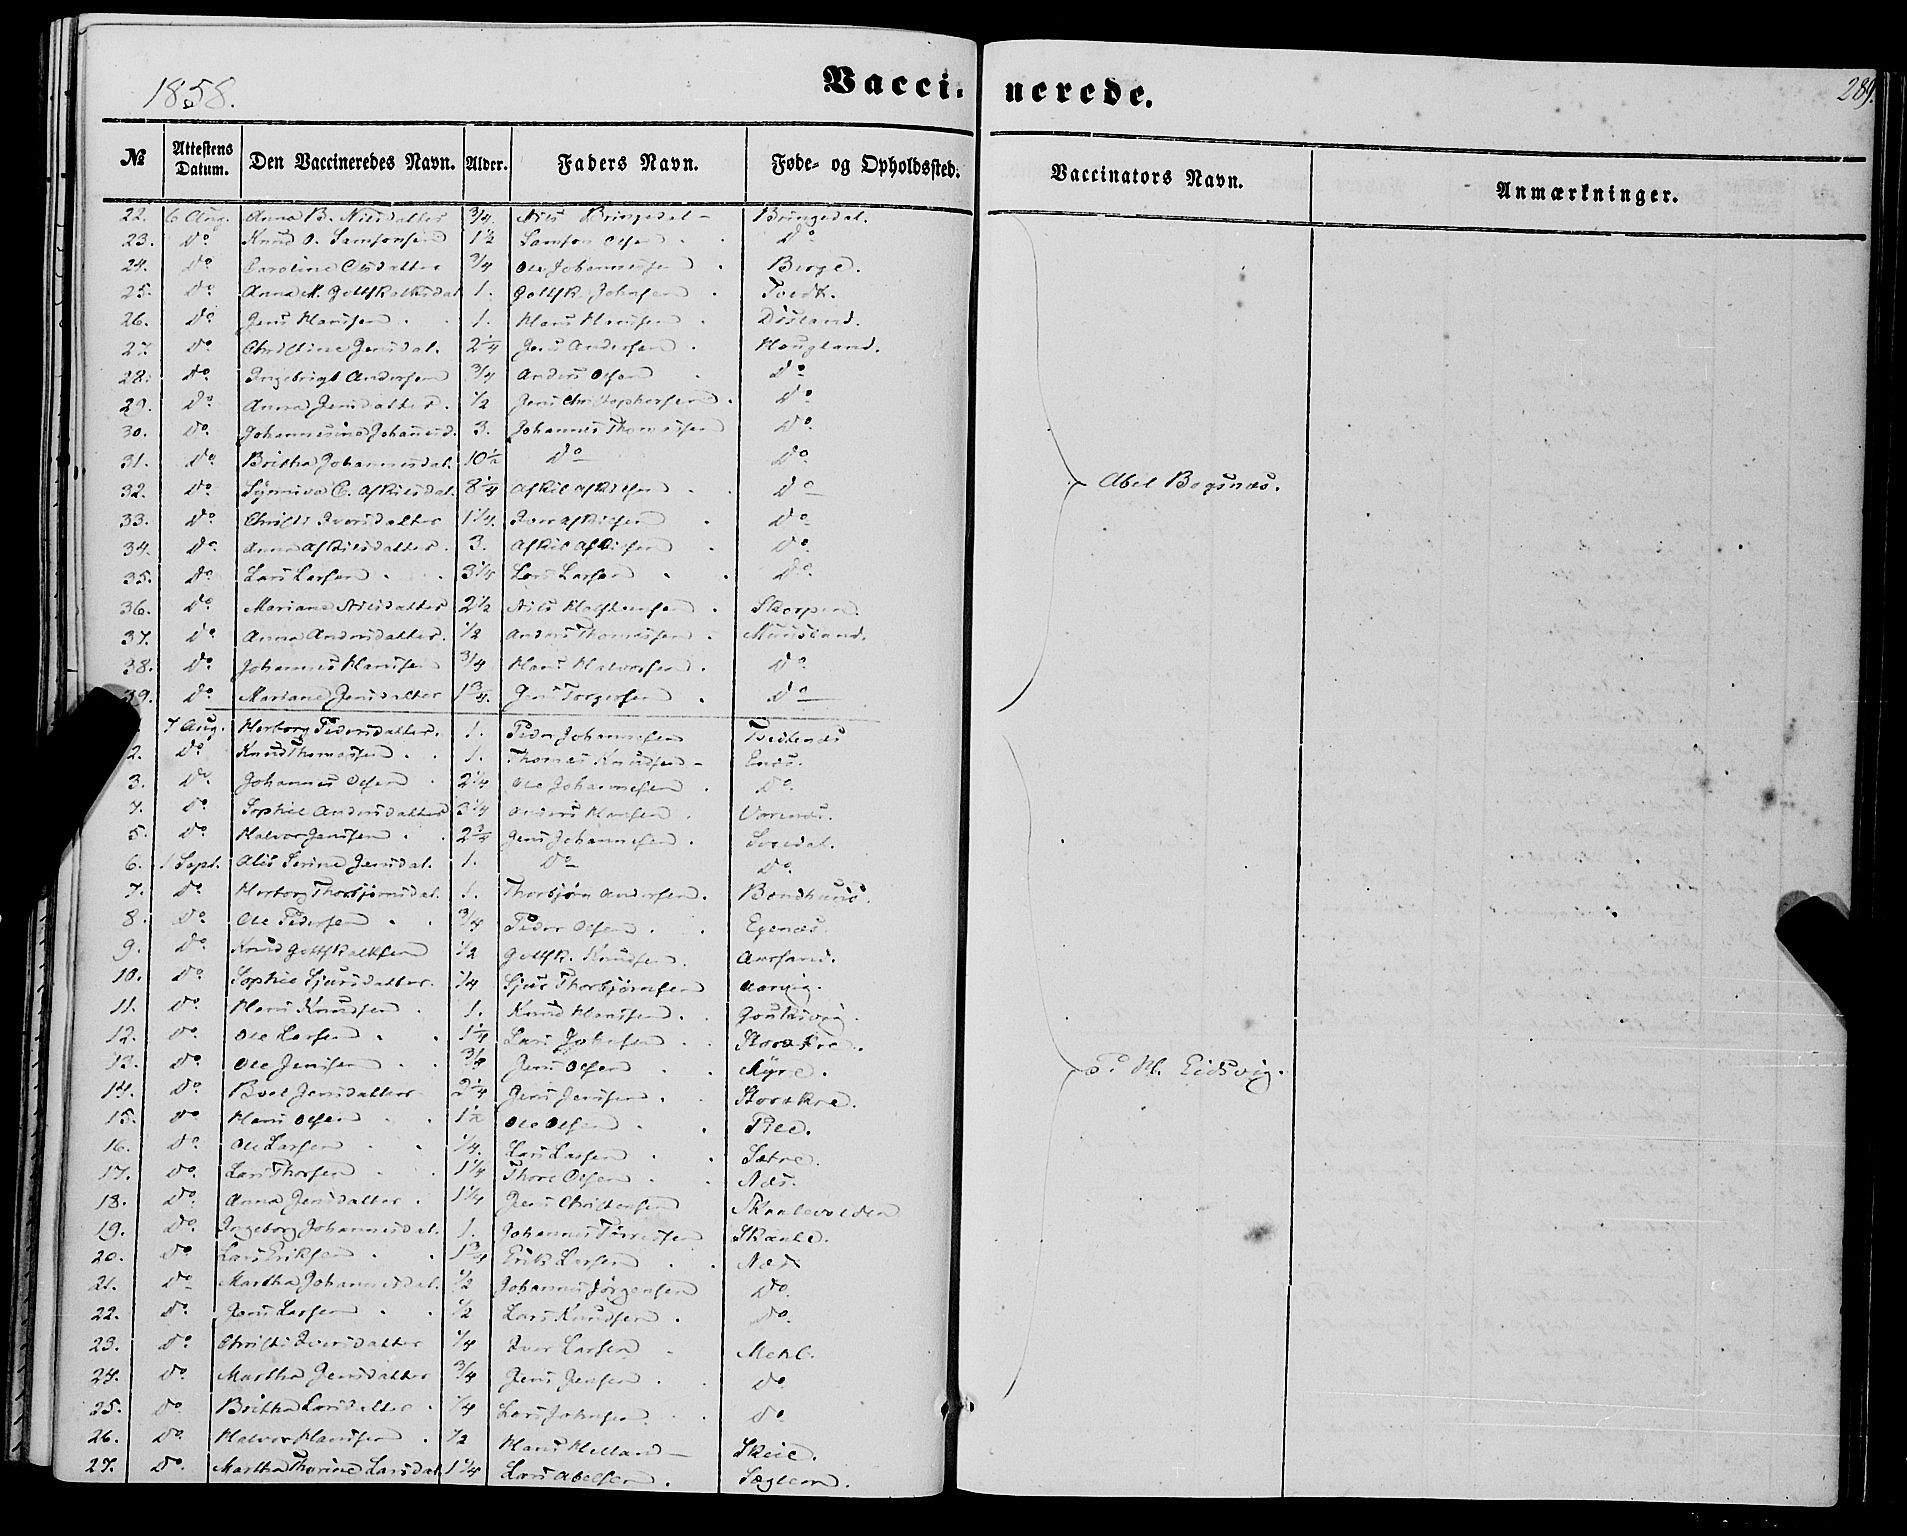 1858.
Vaccinerede.
289.
№ Attestens Datum. Den Vaccineredes Navn. Alder. Faders Navn. Føde- og Opholdssted. Vaccinators Navn. Anmærkninger.
22. 6 Aug. Anna B. Nilsdatter 3/4. Nils Bringedal - Bringedal.
23. Do Knud O. Samsonsen 1 1/2 Samson Olsen Do
24. Do Caroline Olsdatter 3/4 Ole Johannessen Berge.
25. Do Anna M. Gottskalksdat. 1. Gottsk. Johnsen Tvedt.
26. Do Jens Hansen 1. Hans Hansen
27. Do Christine Jensdat. 2 1/4 Jens Andersen Haugland.
28. Do Ingebrigt Andersen 3/4 Anders Olsen Do
29. Do Anna Jensdatter. 1/2 Jens Christophersen Do
30. Do Johannesine Johannesd. 3. Johannes Thomassen Do
31. Do Britha Johannesdat. 10 1/2 Do Do
32. Do Synniva C. Askilsdat. 8 1/4 Askil Askilsen Do
33. Do Christi Iversdatter 1 1/4. Iver Askilsen Do
34. Do Anna Askilsdatter. 3. Askil Askilsen Do
35. Do Lars Larsen 3 1/4 Lars Larsen Do.
Abel Bogsnæs.
36. Do Mariane Nilsdatter 2 1/2 Nils Skorpen.
37. Do Anna Andersdatter. 1/2 Anders Thomassen Muusland.
38. Do Johannes Hansen 3/4 Hans Halvorsen Do
39. Do Mariane Jensdatter 1 3/4. Jens Torgersen Do
7 Aug. Herborg Pedersdatter. 1. Peder Johannessen
2. Do Knud Thomassen 1. Thomas Knudsen - Enæs.
3. Do Johannes Olsen 2 1/4 Ole Johannesen Do.
Do Sophie Andersdatter 3 1/4 Anders Hansen
5. Do Halvor Jensen 2 3/4 Jens Johannesen
6. 1 Sept. Alis Serine Jensdat. 1. Do Do
7. Do Herborg Thorbjørnsdat. 1. Thorbjørn Andersen. Bondhuus.
8. Do Ole Pedersen 3/4 Peder Olsen Egenæs.
9. Do Knud Gottskalksen 1/2 Gottsk. Knudsen. Aarsand.
10. Do Sophie Sjursdatter. 1/4 Sjur Thorbjørnsen Aarvig.
11. Do Hans Knudsen 1. Knud Hansen.
12. Do Ole Larsen 1 1/4 Lars Johnsen
13. Do Ole Jensen Jens Olsen Myre.
14. Do Boel Jensdatter 2 1/4 Jens Jensen
15. Do Hans Olsen 1 1/2 Ole Olsen
16. Do Ole Larsen 1/4. Lars Larsen Sætre.
17. Do Lars Thorsen 1 1/4 Thore Olsen Næs.
18. Do Anna Jensdatter 1 1/4 Jens Christensen
19. Do Ingeborg Johannesdat. 1. Johannes Skaale.
20. Do Lars Eriksen 1 3/4 Erik Larsen Næs
21. Do Martha Johannesdat. 1/2 Johannes Jörgensen Do
22. Do Jens Larsen 1/2 Lars Knudsen Do.
23. Do Christi Iversdatter 1/4 Iver Larsen Mehl.
24. Do Martha Jensdatter 3/4 Jens Jensen Do
25. Do Britha Larsdatter 1/4 Lars Johnsen Do
26. Do Halvor Hansen 1/2 Hans Helland - Skeie.
27. Do Martha Thorine Larsdat. 1 1/4 Lars Abelsen.
H. Eidsvig.